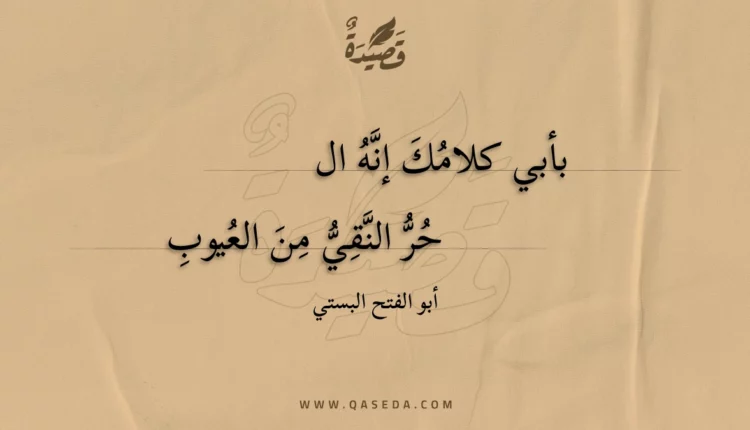 قَصِيدَةٌ
بأبي كلامُكَ إنَّهُ ال
حُرُّ النَّقِيُّ مِنَ العُيوبِ
أبو الفتح البستي
WWW.QASEDA.COM